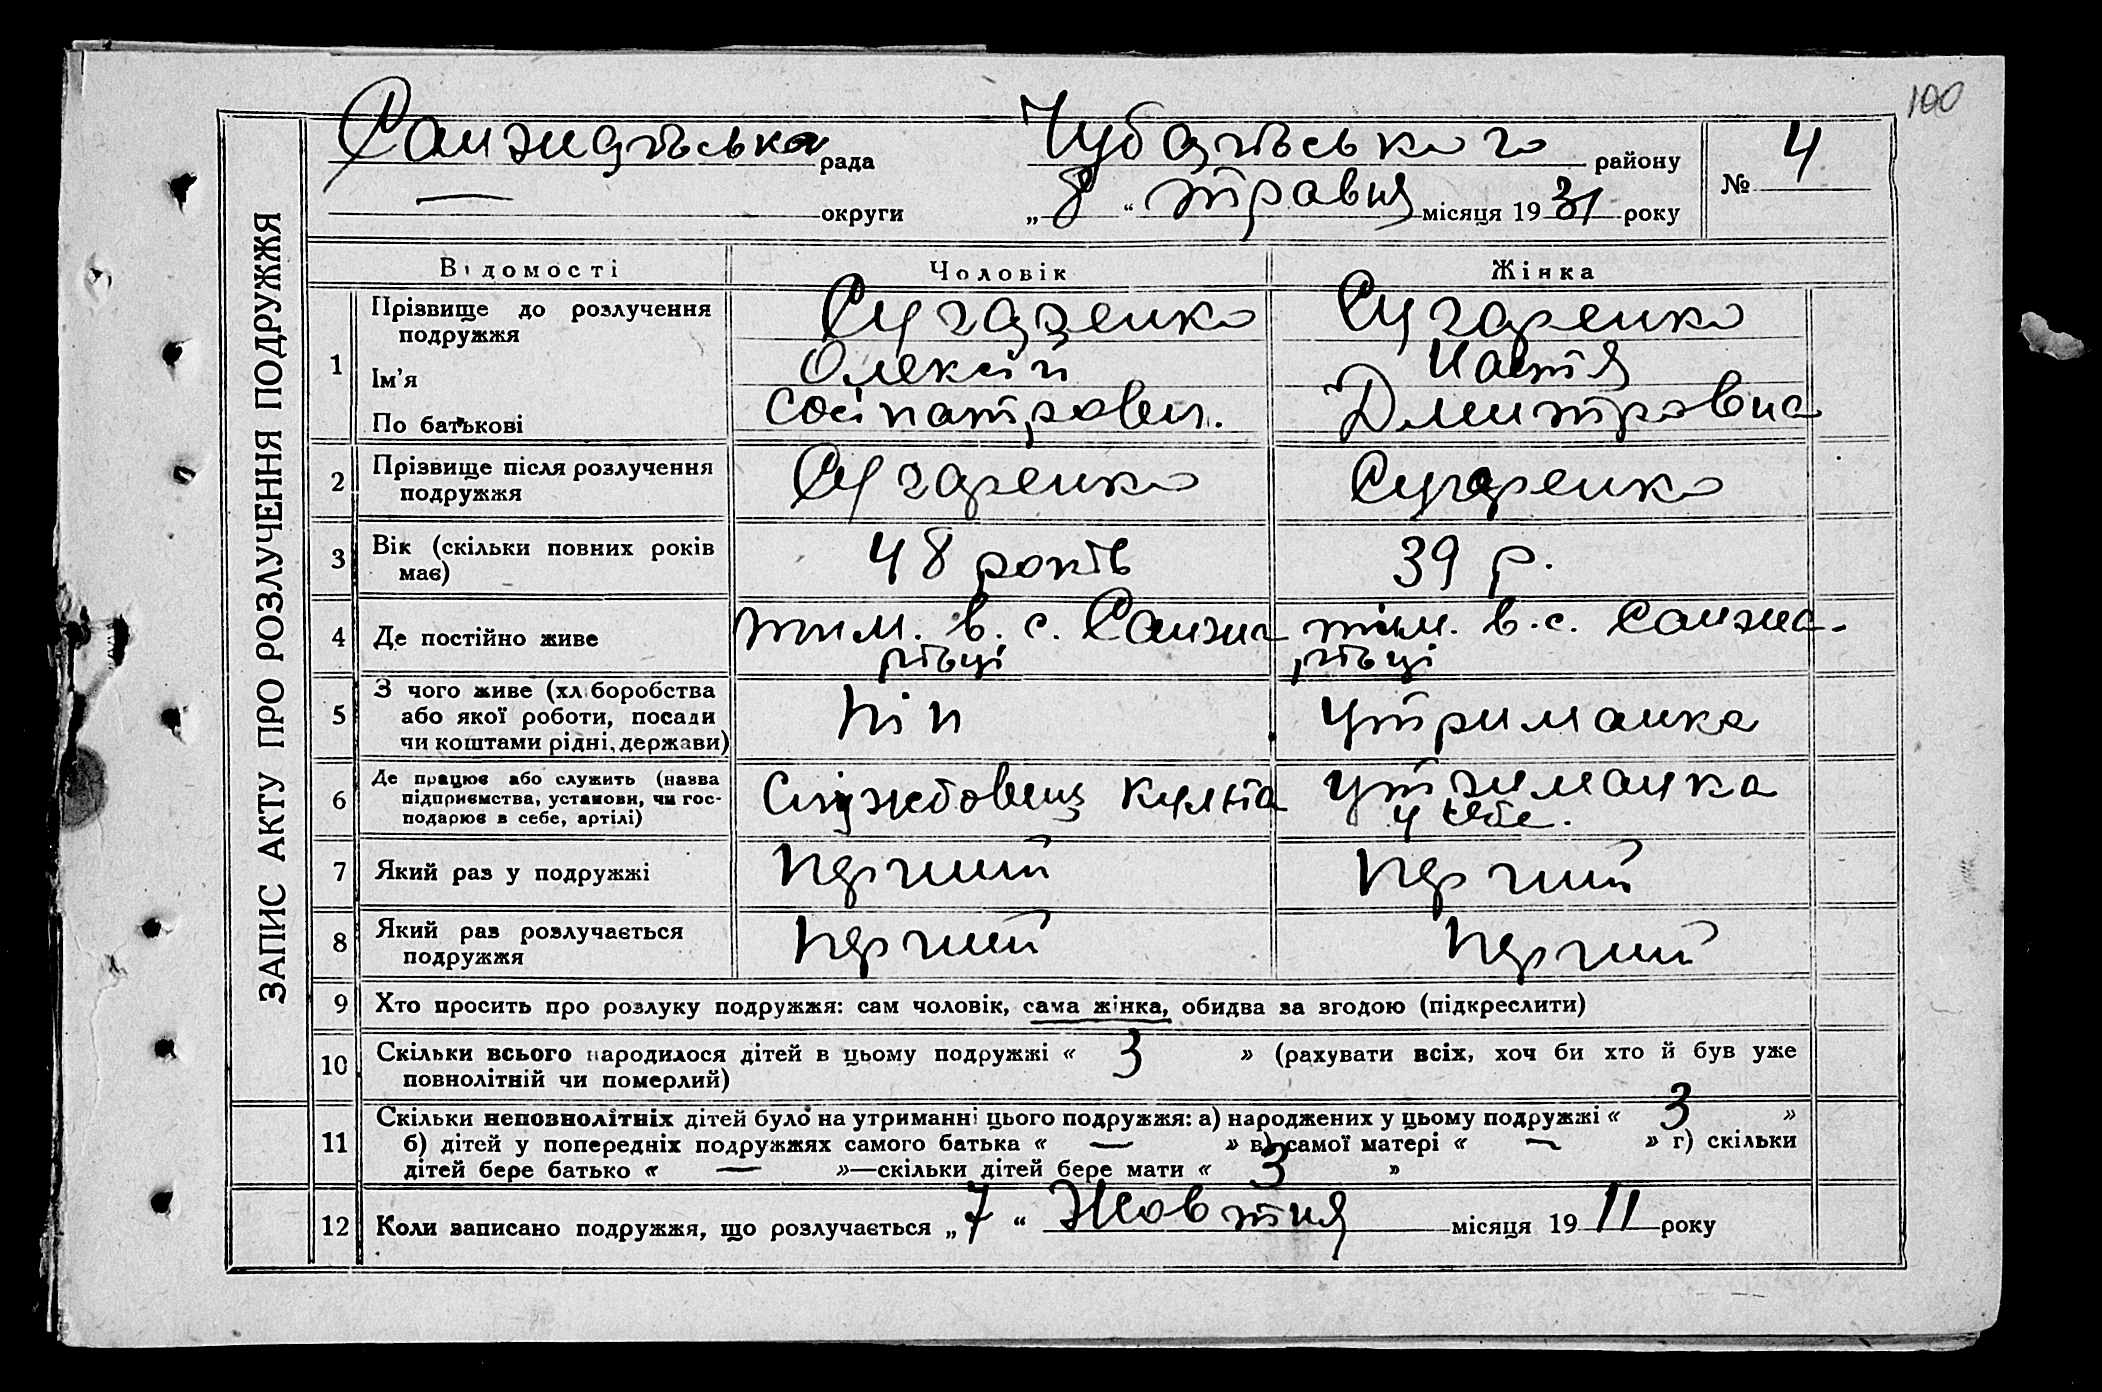 100
Санжарівська рада Чубарівського району № 4
— округи „ 8 “ травня місяця 1931 року
ЗАПИС АКТУ ПРО РОЗЛУЧЕННЯ ПОДРУЖЖЯ
Відомості Чоловік Жінка
1 Прізвище до розлучення Сугаренко Сугаренко
подружжя
Ім’я Олексій Настя
По батькові Сосіпатрович. Дмитровна
2 Прізвище після розлучення Сугаренко Сугаренко
подружжя
3 Вік (скільки повних років 48 років 39 р.
має)
4 Де постійно живе тим. в. с. Санжа тим. в. с. Санжа-
рівці рівці
5 З чого живе (хліборобства Піп Утриманка
або якої роботи, посади
чи коштами рідні, держави)
6 Де працює або служить (назва Службовець культа Утриманка
підприємства, установи, чи гос- у себе.
подарює в себе, артілі)
7 Який раз у подружжі перший перший
8 Який раз розлучається перший перший
подружжя
9 Хто просить про розлуку подружжя: сам чоловік, сама жінка, обидва за згодою (підкреслити)
10 Скільки всього народилося дітей в цьому подружжі « 3 » (рахувати всіх, хоч би хто й був уже
повнолітній чи померлий)
11 Скільки неповнолітніх дітей було на утриманні цього подружжя: а) народжених у цьому подружжі « 3 »
б) дітей у попередніх подружжях самого батька « — » в) самої матері « — » г) скільки
дітей бере батько « — »—скільки дітей бере мати « 3 »
12 Коли записано подружжя, що розлучається „ 7 “ Жовтня місяця 1911 року